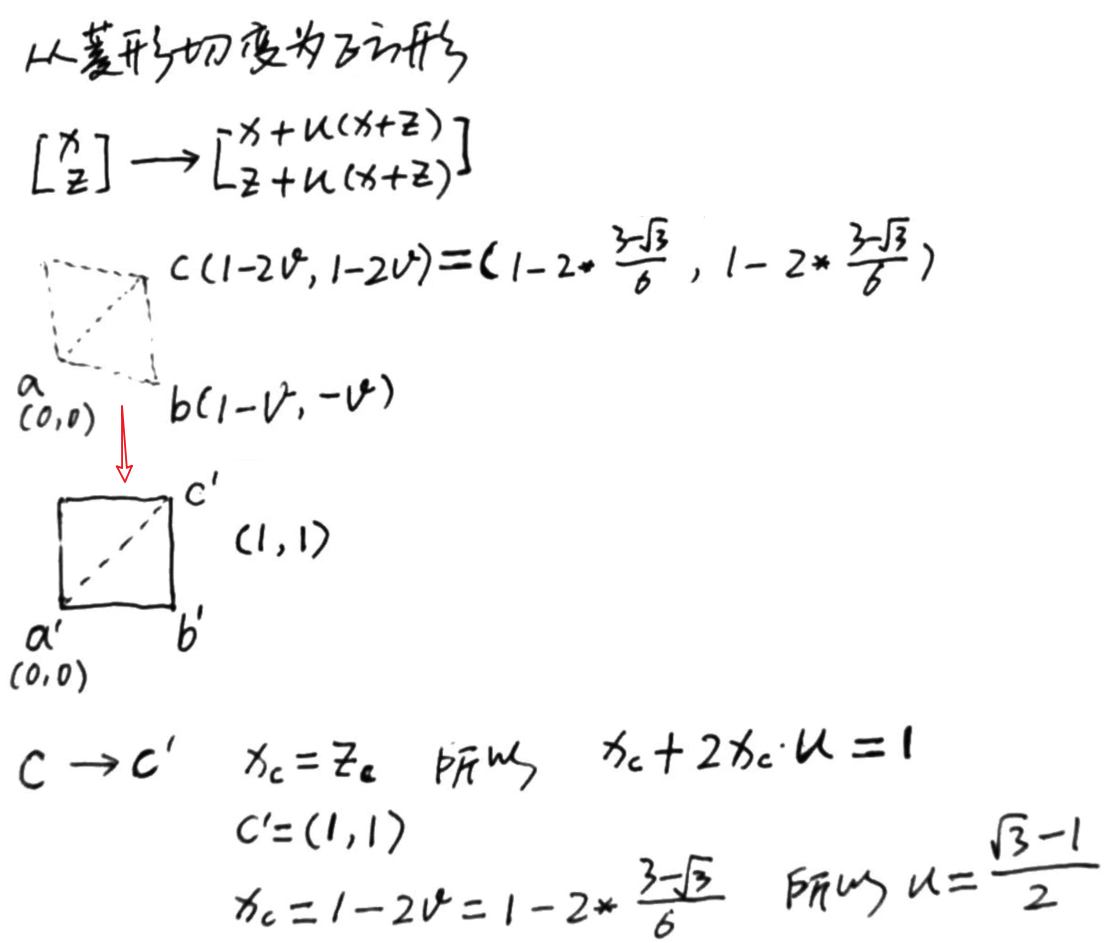 从菱形切变为正方形
[x z] → [x+u(x+z) z+u(x+z)]
c(1-2v, 1-2v)=(1-2*(3-√3)/6, 1-2*(3-√3)/6)
a
(0,0)
b(1-v, -v)
c'
(1,1)
a'
b'
(0,0)
c → c' x_c = z_c 所以 x_c + 2x_c·u = 1
c'=(1,1)
x_c = 1-2v = 1-2*(3-√3)/6 所以 u = (√3-1)/2